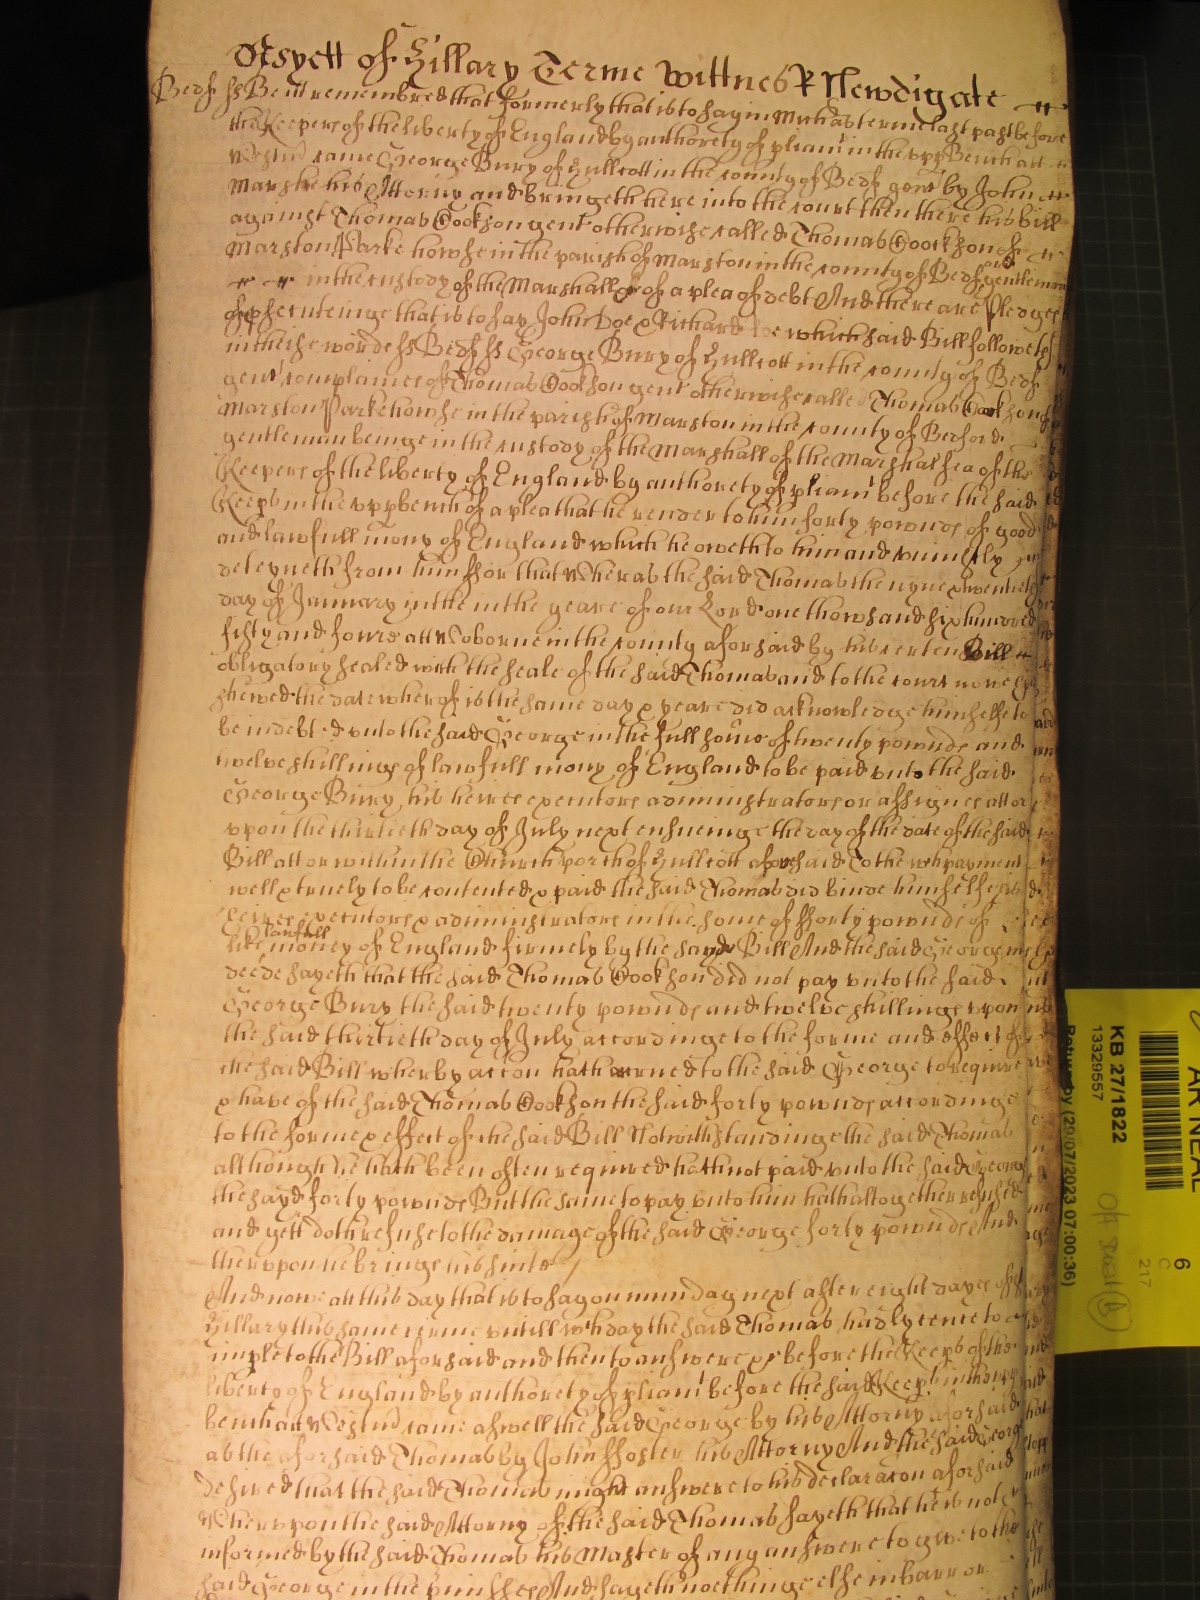 As yett of Hillary Terme Wittnes R Newdigate
Bedf ss Be itt remembred that formerly that is to say in Michas terme last past before
the Keepers of the liberty of England by authorety of pliam in the upp Bench att
Westm came George Bury of Hullcott in the county of Bedf gent by John
Marshe his Attorny and bringeth here into the court then there his bill
against Thomas Cookson gent otherwise called Thomas Cookson of
Marston Parke howse in the parish of Marston in the county of Bedf gentleman
in the custody of the Marshall &c of a plea of debt And there are pledges
of psecuteinge that is to say John Doe & Richard Roe which said Bill followeth
in theise wordes ss Bedf ss George Bury of Hullcott in the county of Bedf
gent complaines of Thomas Cookson gent otherwise called Thomas Cookson of
Marston Parke howse in the parish of Marston in the county of Bedford
gentleman beinge in the custody of the Marshall of the Marshalsea of the
Keepers of the liberty of England by authorety of pliam before the said
Keeps in the upp bench of a plea that he render to him forty pownds of good
and lawfull mony of England which he oweth to him and uniustly
deteyneth from him ffor that Wheras the said Thomas the nyne & twentieth
day of January in the in the yeare of our Lord one thowsand six hundred
fifty and fowre att Woborne in the county aforsaid by his certen Bill
obligatory sealed with the seale of the said Thomas and to the court nowe
shewed the date wherof is the same day & yeare did acknowledge himselfe to
be indebted unto the said George in the full some of twenty pownds and
twelve shillings of lawfull mony of England to be paid unto the said
George Bury his heires executors administrators or assignes att or
upon the thirtieth day of July next ensueinge the day of the date of the said
Bill att or within the Church porch of Hullcott aforesaid To the wch payment
well & truely to be contented & paid the said Thomas did binde himselfe his
heires executors & administrators in the some of fforty pownds of
like lawfull money of England firmely by the sayd Bill And the said George in
deede sayeth that the said Thomas Cookson did not pay unto the said
George Bury the said twenty pownds and twelve shillings upon
the said thirtieth day of July accordinge to the forme and effect of
the said Bill wherby accon hath acrued to the said George to require
& have of the said Thomas Cookson the said forty pownds accordinge
to the forme & effect of the said Bill Notwithstandinge the said Thomas
although he hath been often required hath not paid unto the said George
the sayd forty pownds But the same to pay unto him hath altogether refused
and yett doth refuse to the damage of the said George forty pownds And
therupon he bringes his suite
And nowe att this day that is to say on munday next after eight dayes of
Hillary this same terme untill wch day the said Thomas had lycence to
imple to the Bill aforsaid and then to answere &c before the Keeps of the
liberty of England by authorety of pliam before the said Keeps in the upp
bench att Westm came aswell the said George by his Attorny aforsaid
as the aforsaid Thomas by John ffoster his Attorny And the said George
desired that the said Thomas might answere to his declaracon aforsaid
Wherupon the said Attorny of the said Thomas sayeth that he is not
informed by the said Thomas his Master of any answere to give to the
said George in the pmisses And sayeth noethinge else in barr or
KB 27/1822
1332957
Return by (29/07/2023 07:00:36)
6
C
217